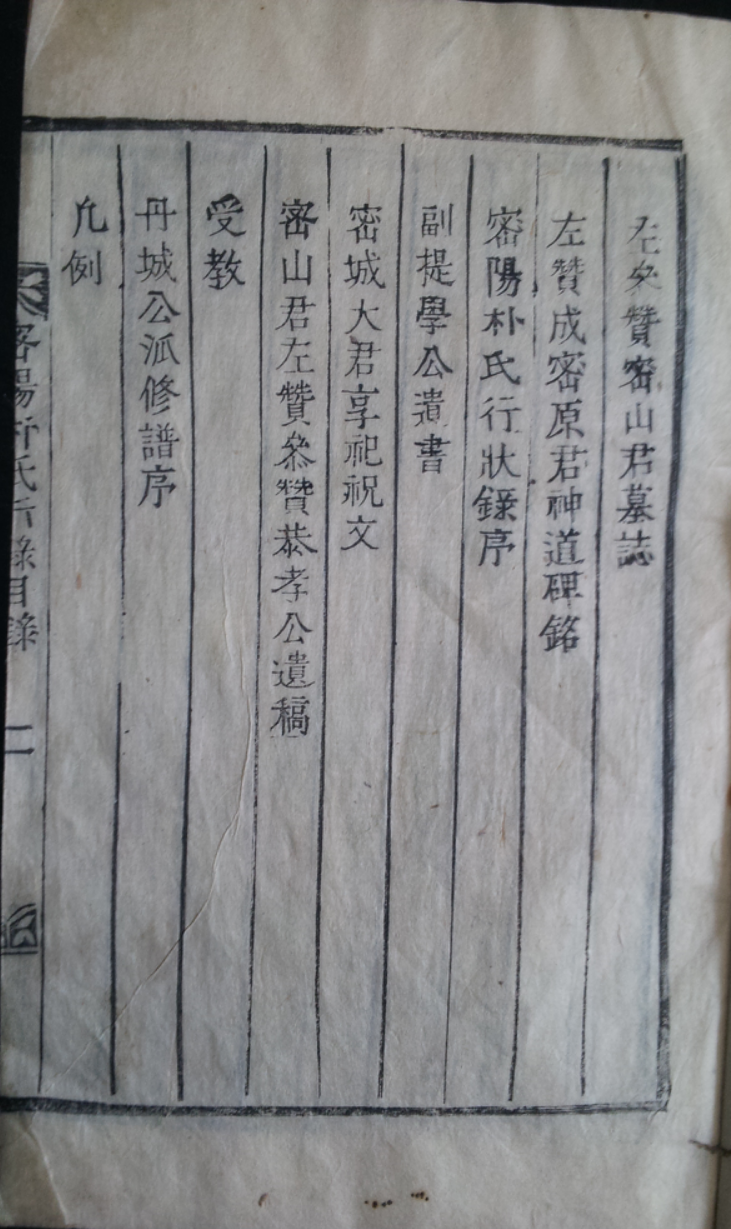 左叅贊密山君墓誌
左贊成密原君神道碑銘
密陽朴氏行狀錄序
副提學公遺書
密城大君享祀祝文
密山君左贊叅贊恭孝公遺稿
受教
丹城公派修譜序
凡例
密陽朴氏行錄目錄 二